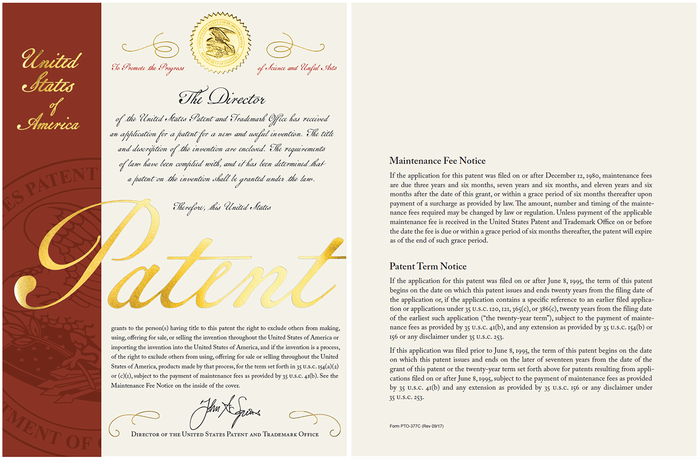 United
States
of
America
To Promote the Progress
of Science and Useful Arts
The Director
of the United States Patent and Trademark Office has received
an application for a patent for a new and useful invention. The title
and description of the invention are enclosed. The requirements
of law have been complied with, and it has been determined that
a patent on the invention shall be granted under the law.
Therefore, this United States
Patent
grants to the person(s) having title to this patent the right to exclude others from making,
using, offering for sale, or selling the invention throughout the United States of America or
importing the invention into the United States of America, and if the invention is a process,
of the right to exclude others from using, offering for sale or selling throughout the United
States of America, products made by that process, for the term set forth in 35 U.S.C. 154(a)(2)
or (c)(1), subject to the payment of maintenance fees as provided by 35 U.S.C. 41(b). See the
Maintenance Fee Notice on the inside of the cover.
Director of the United States Patent and Trademark Office
Maintenance Fee Notice
If the application for this patent was filed on or after December 12, 1980, maintenance fees
are due three years and six months, seven years and six months, and eleven years and six
months after the date of this grant, or within a grace period of six months thereafter upon
payment of a surcharge as provided by law. The amount, number and timing of the mainte-
nance fees required may be changed by law or regulation. Unless payment of the applicable
maintenance fee is received in the United States Patent and Trademark Office on or before
the date the fee is due or within a grace period of six months thereafter, the patent will expire
as of the end of such grace period.
Patent Term Notice
If the application for this patent was filed on or after June 8, 1995, the term of this patent
begins on the date on which this patent issues and ends twenty years from the filing date of
the application or, if the application contains a specific reference to an earlier filed applica-
tion or applications under 35 U.S.C. 120, 121, 365(c), or 386(c), twenty years from the filing date
of the earliest such application ("the twenty-year term"), subject to the payment of mainte-
nance fees as provided by 35 U.S.C. 41(b), and any extension as provided by 35 U.S.C. 154(b) or
156 or any disclaimer under 35 U.S.C. 253.
If this application was filed prior to June 8, 1995, the term of this patent begins on the date
on which this patent issues and ends on the later of seventeen years from the date of the
grant of this patent or the twenty-year term set forth above for patents resulting from appli-
cations filed on or after June 8, 1995, subject to the payment of maintenance fees as provided
by 35 U.S.C. 41(b) and any extension as provided by 35 U.S.C. 156 or any disclaimer under
35 U.S.C. 253.
Form PTO-377C (Rev 09/17)